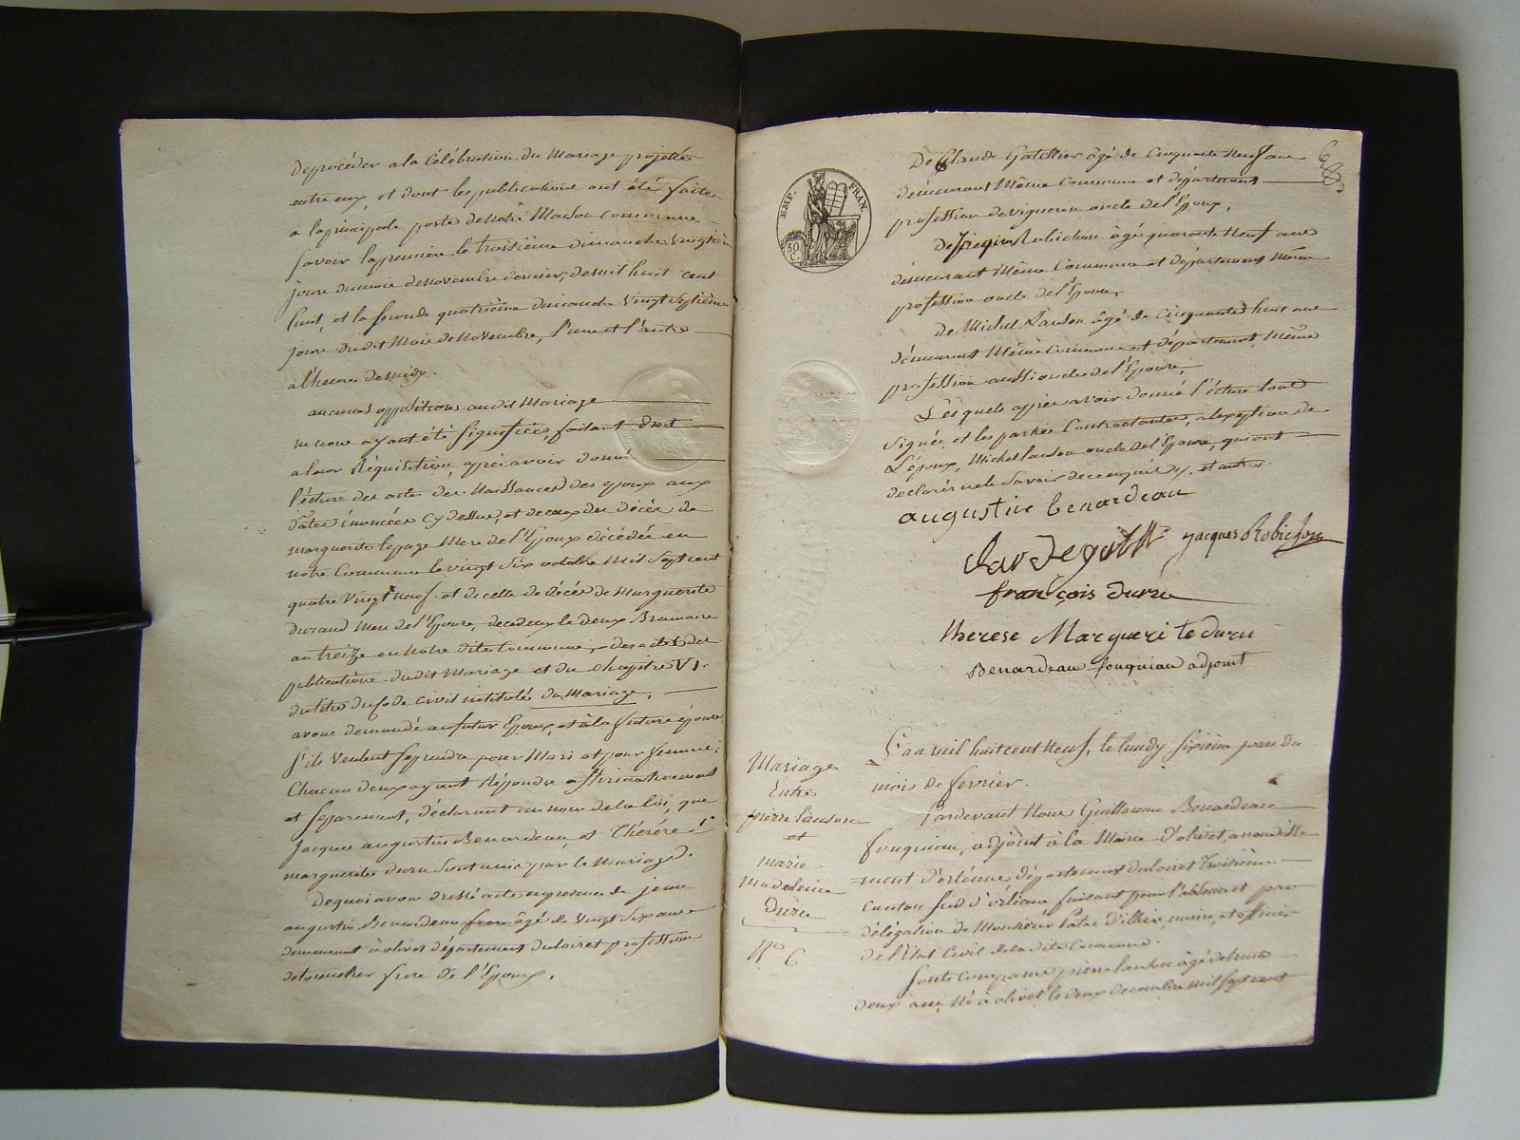 de procéder a la Célébration du Mariage projettée
entre eux, et dont les publications ont été faites
a la principale porte de notre Maison commune
savoir la première le troisième dimanche Vingtième
jour du mois de Novembre dernier, de mil huit cent
huit, et la seconde quatrième dimanche Vingt Septième
jour dudit Mois de Novembre, l'une et l'autre
a l'heure de midy.
aucunes oppositions audit Mariage
ne nous ayant été signifiées, faisant droit
a leur Réquisition, après avoir donné
lecture des actes de Naissances des époux aux
dates énoncées cy dessus, et de ceux des décès de
marguerite lepage Mere de l'Epoux décédée en
notre Commune le vingt six octobre Mil Sept cent
quatre Vingt Neuf et de celle de décès de Marguerite
Durand Mere de l'Epouse, decedeux le deux Brumaire
an treize en notre dite Commune, des actes de
publications dudit Mariage et du chapitre VI.
du titre du Code civil intitulé du Mariage,
avons demandé au futur Epoux, et à la future épouse
s'ils veulent se prendre pour Mari et pour femme;
Chacun deux ayant Répondu affirmativement
et séparément, déclarons au nom de la loi, que
Jacques augustin Benardeau, et Thérèse
marguerite duru sont unis par le Mariage.
de quoi avons dressé acte en présence de
augustin Benardeau frere âgé de vingt six ans
demeurant à olivet département du loiret profession
de frere de l'Epoux.
EMP. FRAN.
50 C.
De Claude Gatellier âgé de Cinquante Neuf ans
demeurant Même Commune et département
profession de vigneron oncle de l'Epoux,
De Jacques Robichon âgé quarante Neuf ans
demeurant Même Commune et département Même
profession oncle de l'Epoux
de Michel Lanson âgé de Cinquante huit ans
demeurant Même Commune et département Même
profession aussi oncle de l'Epouse,
Lesquels après avoir donné lecture
signés, et les parties Contractantes, a l'exeption de
L'époux, Michel lanson oncle de l'Epouse, qui ont
declarés ne le savoir de ce enquis
augustin benardeau
Jacques Robichon
françois duru
therese Marguerite duru
Benardeau fouquiau adjoint
Mariage
Entre
pierre lanson
et
marie
Madeleine
Duru
No 6
L'an mil huit cent Neuf, le lundy sixième jour du
mois de fevrier.
Pardevant Nous Guillaume Benardeau
fouquiau, adjoint à la Mairie d'olivet, arrondisse
ment d'orléans, département du loiret troisième
canton sud d'orléans faisant pour l'absence et par
délégation de Monsieur maire, et officier
de l'Etat Civil de la dite Commune.
Sont Comparus pierre lanson âgé de trente
deux ans Né à olivet le deux decembre mil sept cent